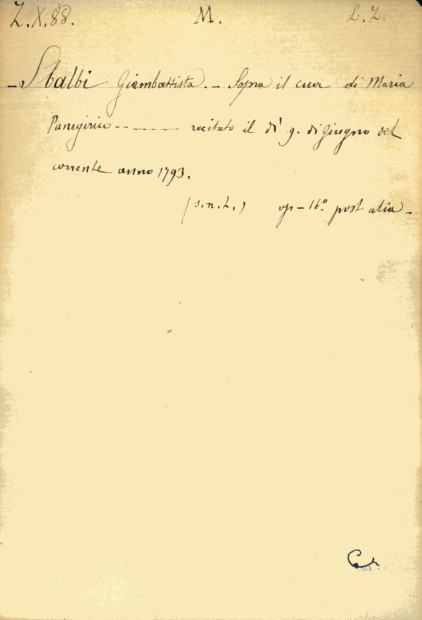 Z.X.88. M. L. Z.
– Sbalbi Giambattista. – Sopra il cuor di Maria
Panegirico - - - - - recitato il dì 9. di Giugno del
corrente anno 1793.
(s.n.t.) op – 16º post alia –